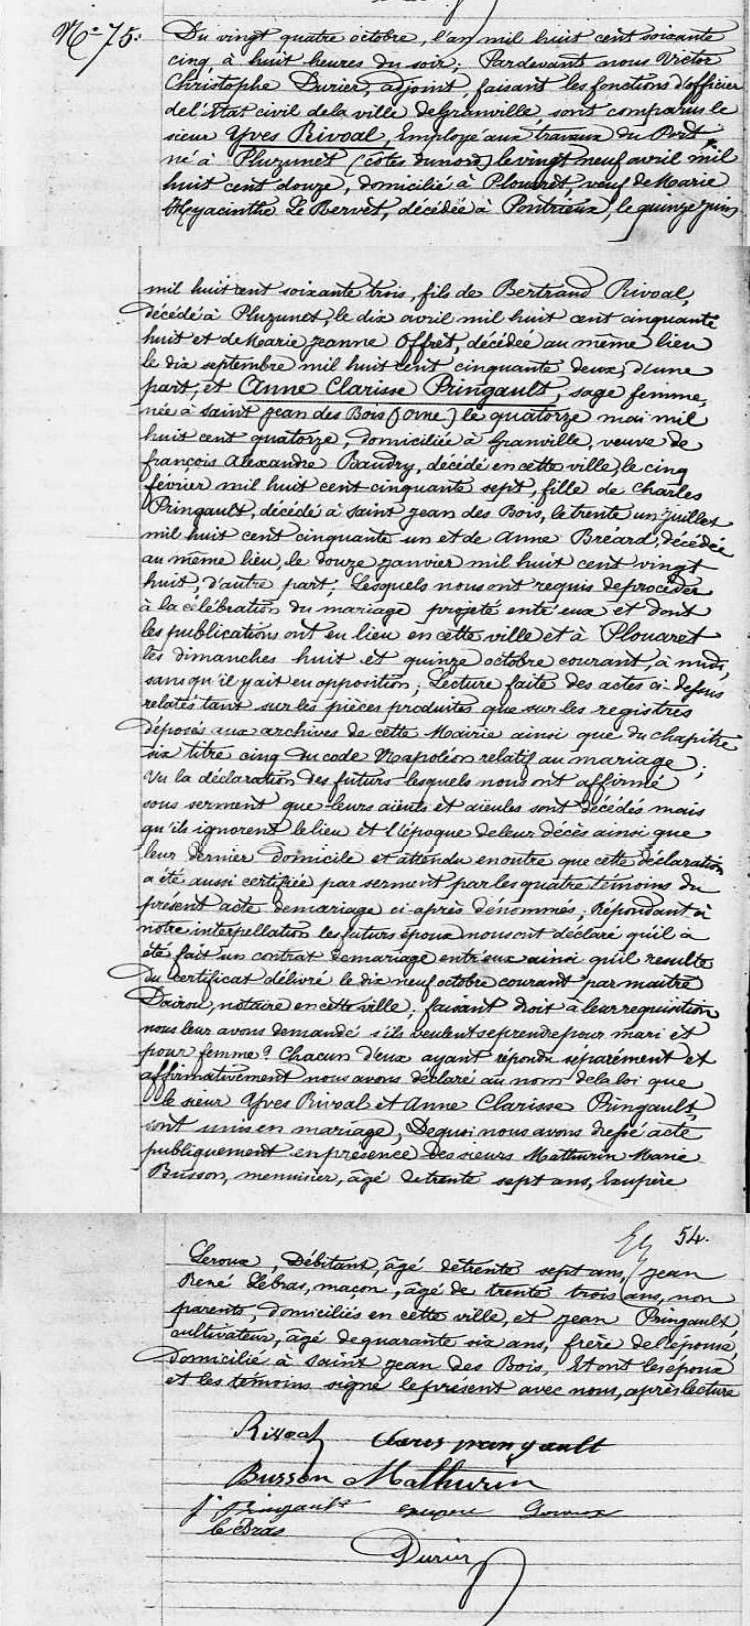 N° 75.
Du vingt quatre octobre, l'an mil huit cent soixante
cinq, à huit heures du soir; Pardevant nous Victor
Christophe Durier, adjoint, faisant les fonctions d'officier
de l'Etat civil de la ville de Granville, sont comparus le
sieur Yves Rivoal, Employé aux travaux du Port
né à Pluzunet (côtes du nord) le vingt neuf avril mil
huit cent douze, domicilié à Plouaret, veuf de Marie
Hyacinthe Le Bervet, décédée à Pontrieux, le quinze juin
mil huit cent soixante trois, fils de Bertrand Rivoal,
décédé à Pluzunet, le dix avril mil huit cent cinquante
huit et de Marie jeanne Offret, décédée au même lieu
le dix septembre mil huit cent cinquante deux, d'une
part; et Anne Clarisse Pringault, sage femme,
née à Saint jean des Bois (Orne) le quatorze mai mil
huit cent quatorze, domiciliée à Granville, veuve de
françois Alexandre Baudry, décédé en cette ville, le cinq
février mil huit cent cinquante sept, fille de Charles
Pringault, décédé à Saint jean des Bois, le trente un juillet
mil huit cent cinquante un et de Anne Breard, décédée
au même lieu, le douze janvier mil huit cent vingt
huit, d'autre part; Lesquels nous ont requis de procéder
à la célébration du mariage projeté entr'eux et dont
les publications ont eu lieu en cette ville et à Plouaret
les dimanches huit et quinze octobre courant, à midi,
sans qu'il y ait eu opposition; Lecture faite des actes ci-dessus
relatés tant sur les pièces produites que sur les registres
déposés aux archives de cette Mairie ainsi que du chapitre
six titre cinq du code Napoléon relatif au mariage;
Vu la déclaration des futurs lesquels nous ont affirmé
sous serment que leurs aïeuls et aïeules sont décédés mais
qu'ils ignorent le lieu et l'époque de leur décès ainsi que
leur dernier domicile et attendu en outre que cette déclaration
a été aussi certifiée par serment par les quatre témoins du
présent acte de mariage ci-après dénommés; Répondant à
notre interpellation les futurs époux nous ont déclaré qu'il a
été fait un contrat de mariage entr'eux ainsi qu'il résulte
du certificat délivré le dix neuf octobre courant par maître
Dairou, notaire en cette ville; faisant droit à leur requisition
nous leur avons demandé s'ils veulent se prendre pour mari et
pour femme? Chacun d'eux ayant répondu séparément et
affirmativement nous avons déclaré au nom de la loi que
le sieur Yves Rivoal et Anne Clarisse Pringault,
sont unis en mariage; De quoi nous avons dressé acte
publiquement en présence des sieurs Mathurin Marie
Busson, menuisier, âgé de trente sept ans, Exupère
54.
Leroux, Débitant, âgé de trente sept ans, jean
René Lebras, maçon, âgé de trente trois ans, non
parents, domiciliés en cette ville, et jean Pringault,
cultivateur, âgé de quarante six ans, frère de l'épouse,
domicilié à Saint jean des Bois, Et ont les époux
et les témoins signé le présent avec nous, après lecture
Rivoal
Busson Mathurin
J. Pringault exupere Leroux
le Bras
Durier